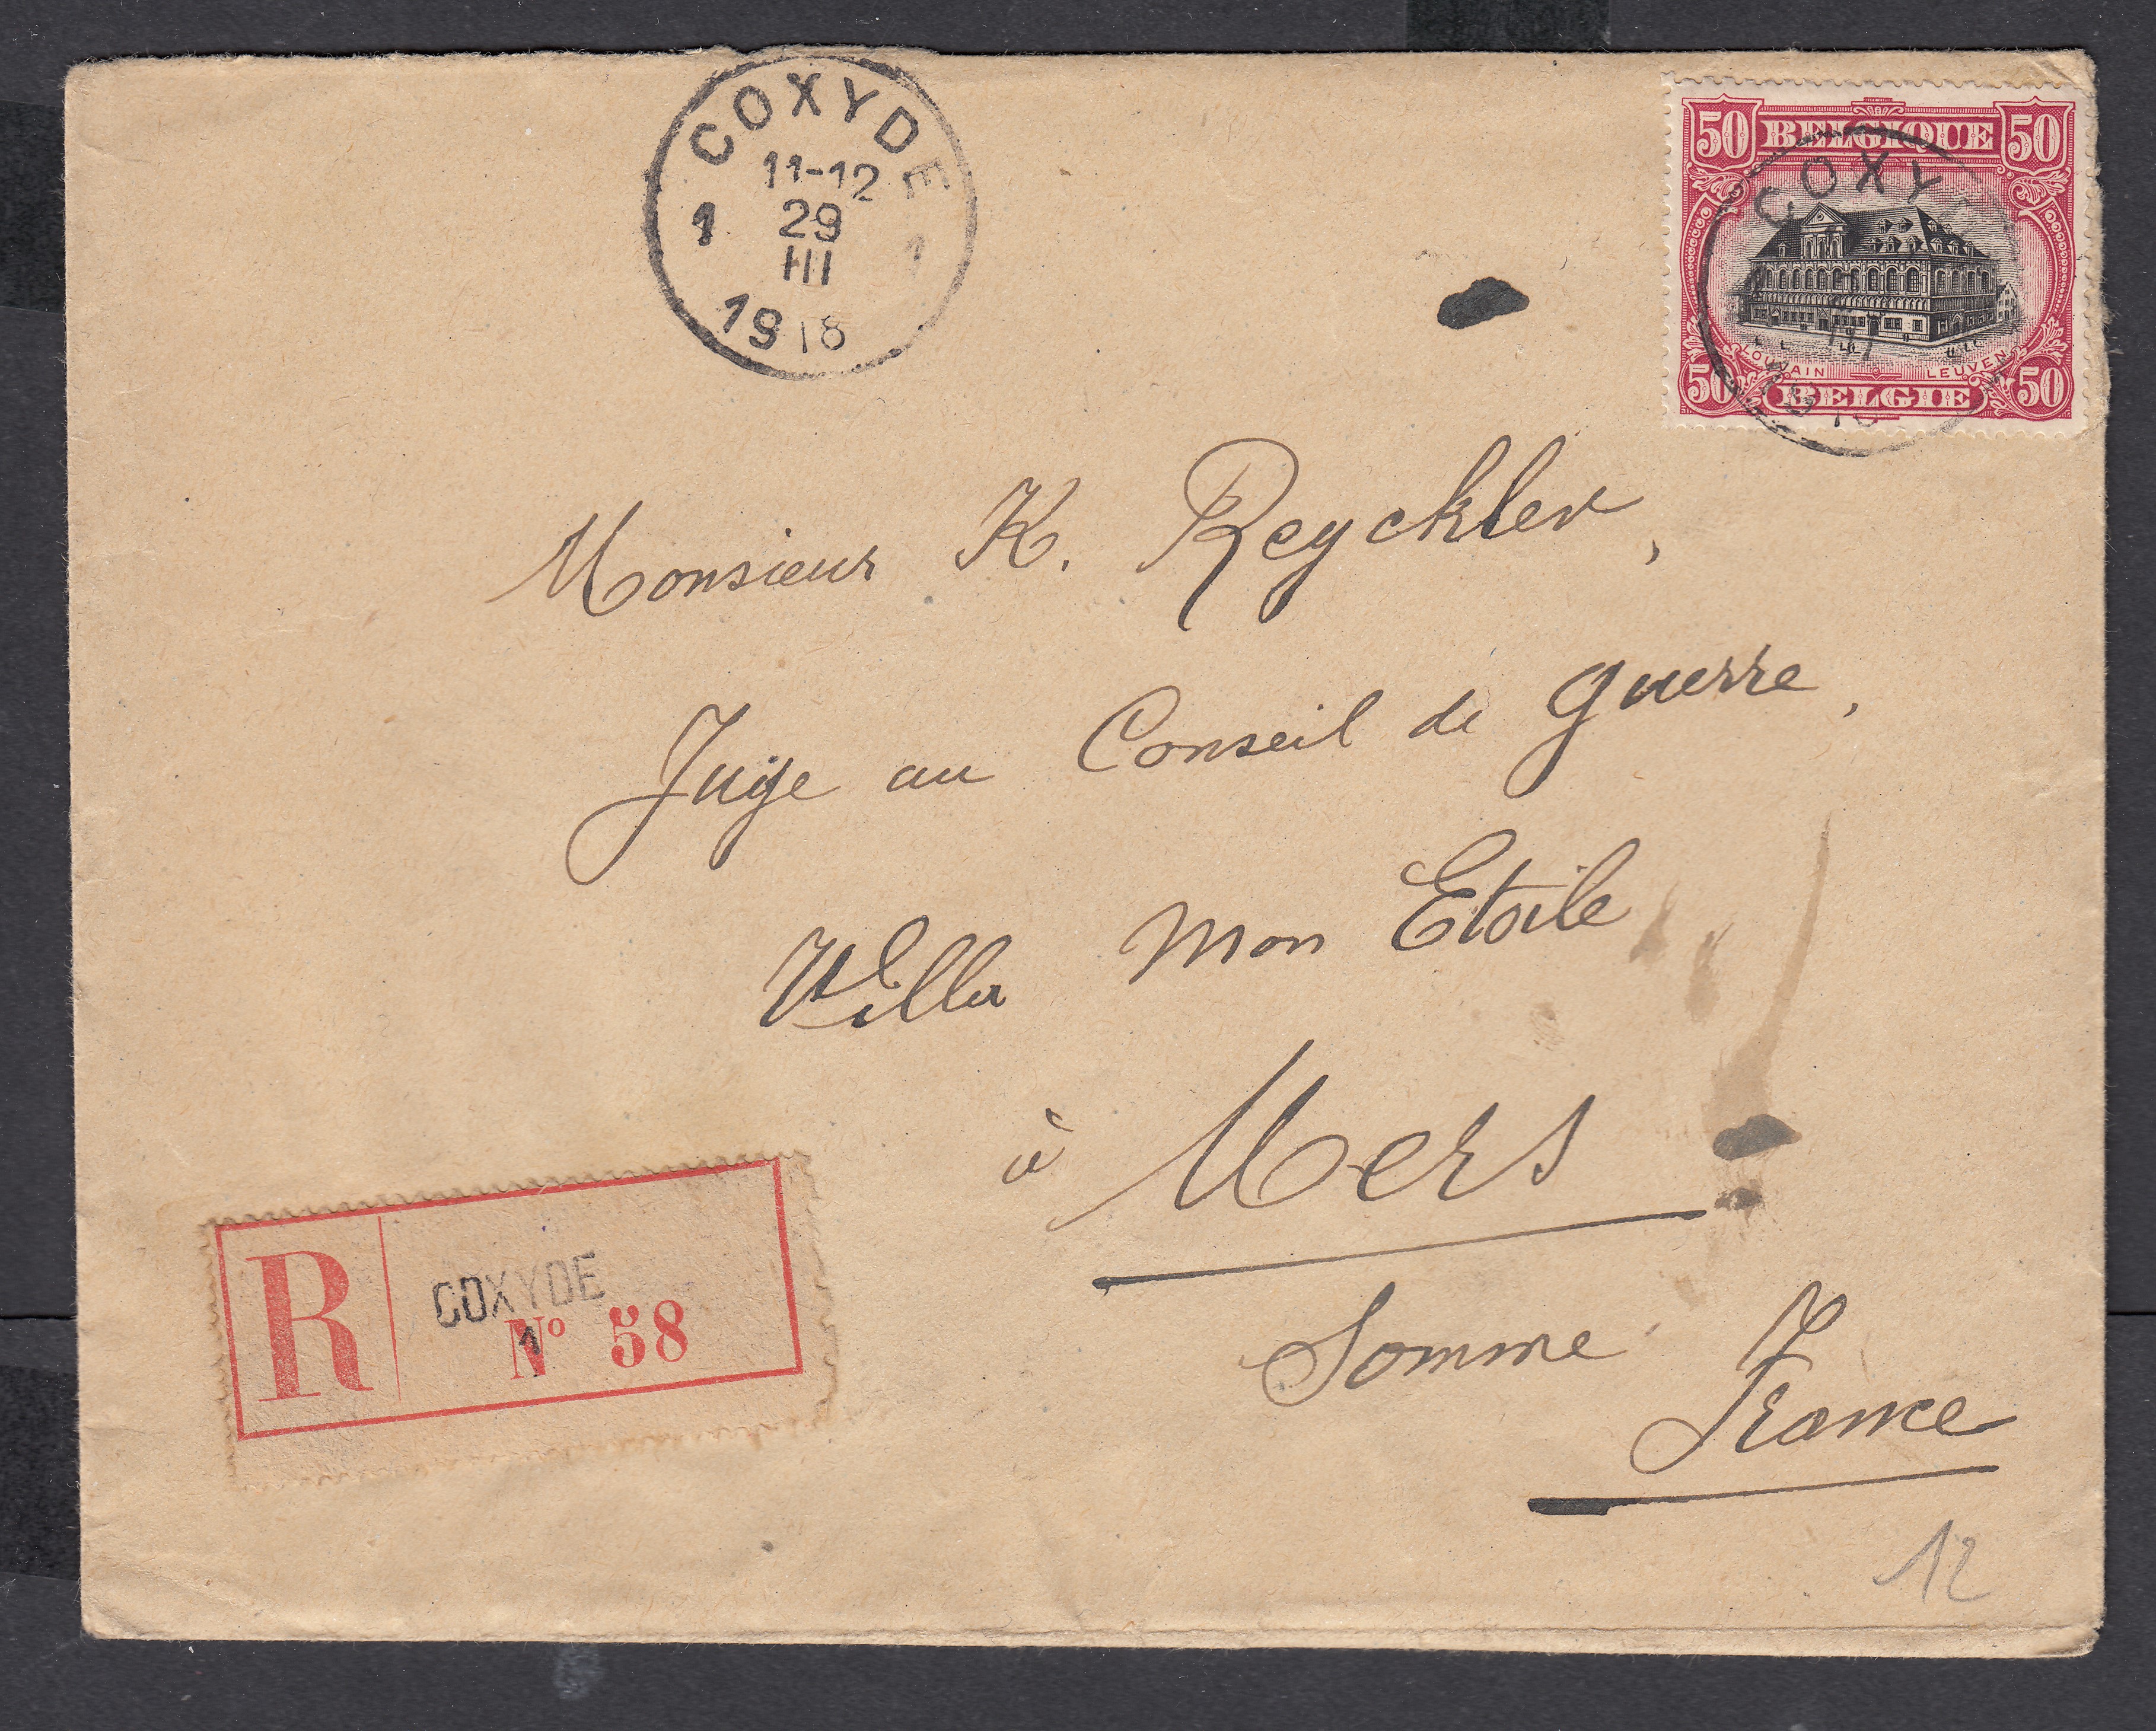 COXYDE
11-12
29
III
1 1
1918
50 BELGIQUE 50
COXY
LOUVAIN LEUVEN
50 BELGIE 50
Monsieur K. Reyckler,
Juge au Conseil de guerre,
Villa Mon Etoile
à Mers
Somme
France
R COXYDE
1
Nº 58
12